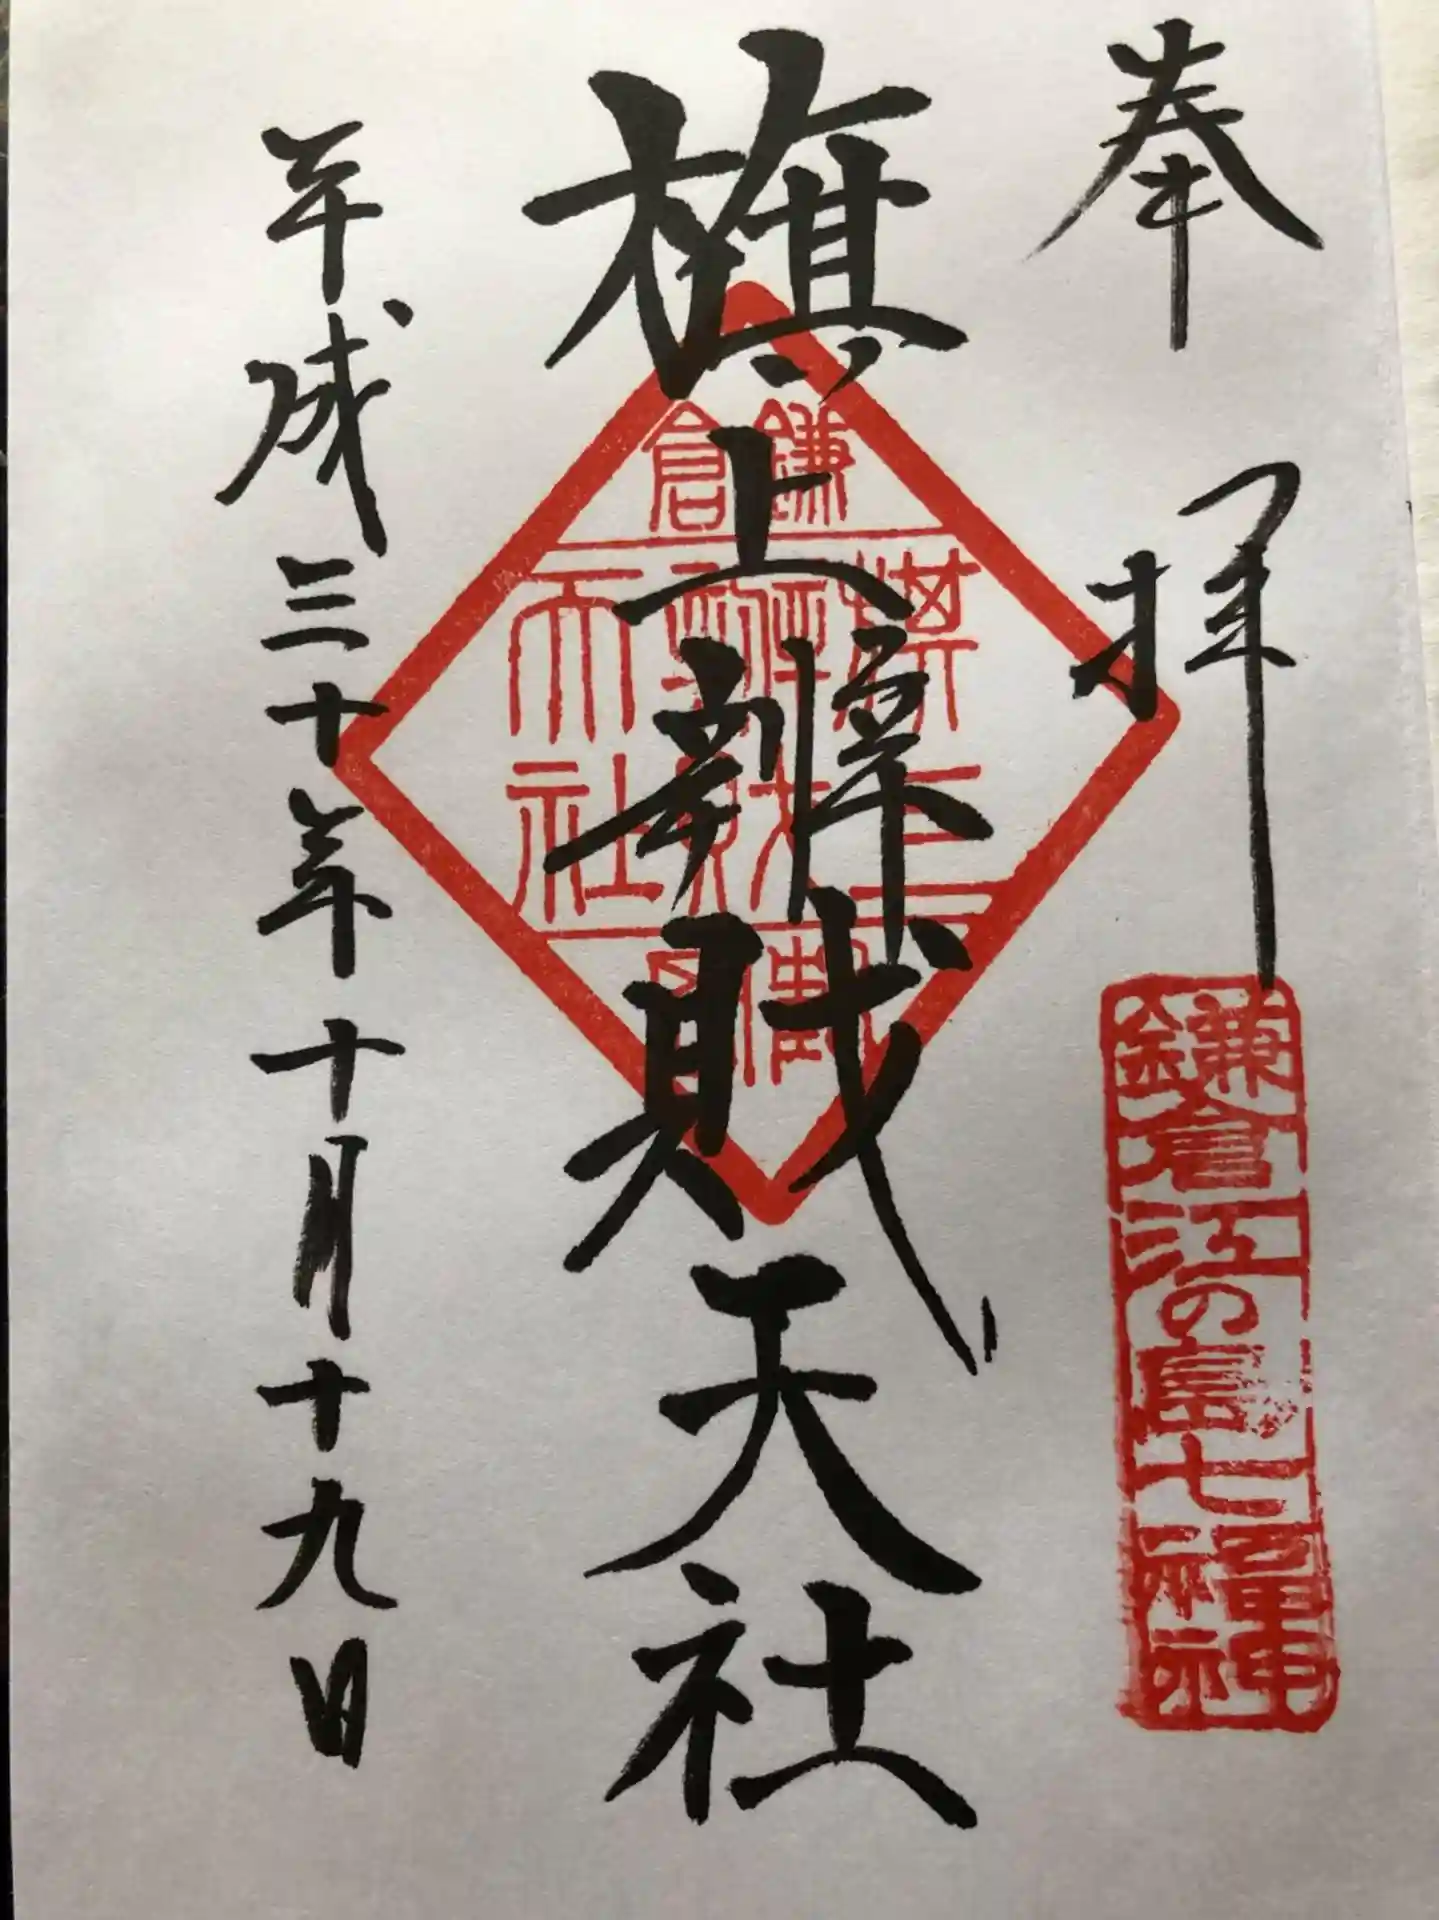 奉拝
鎌倉江の島七福神
旗上辨財天社
鎌倉
旗上
辨財
天社
平成三十年十月十九日